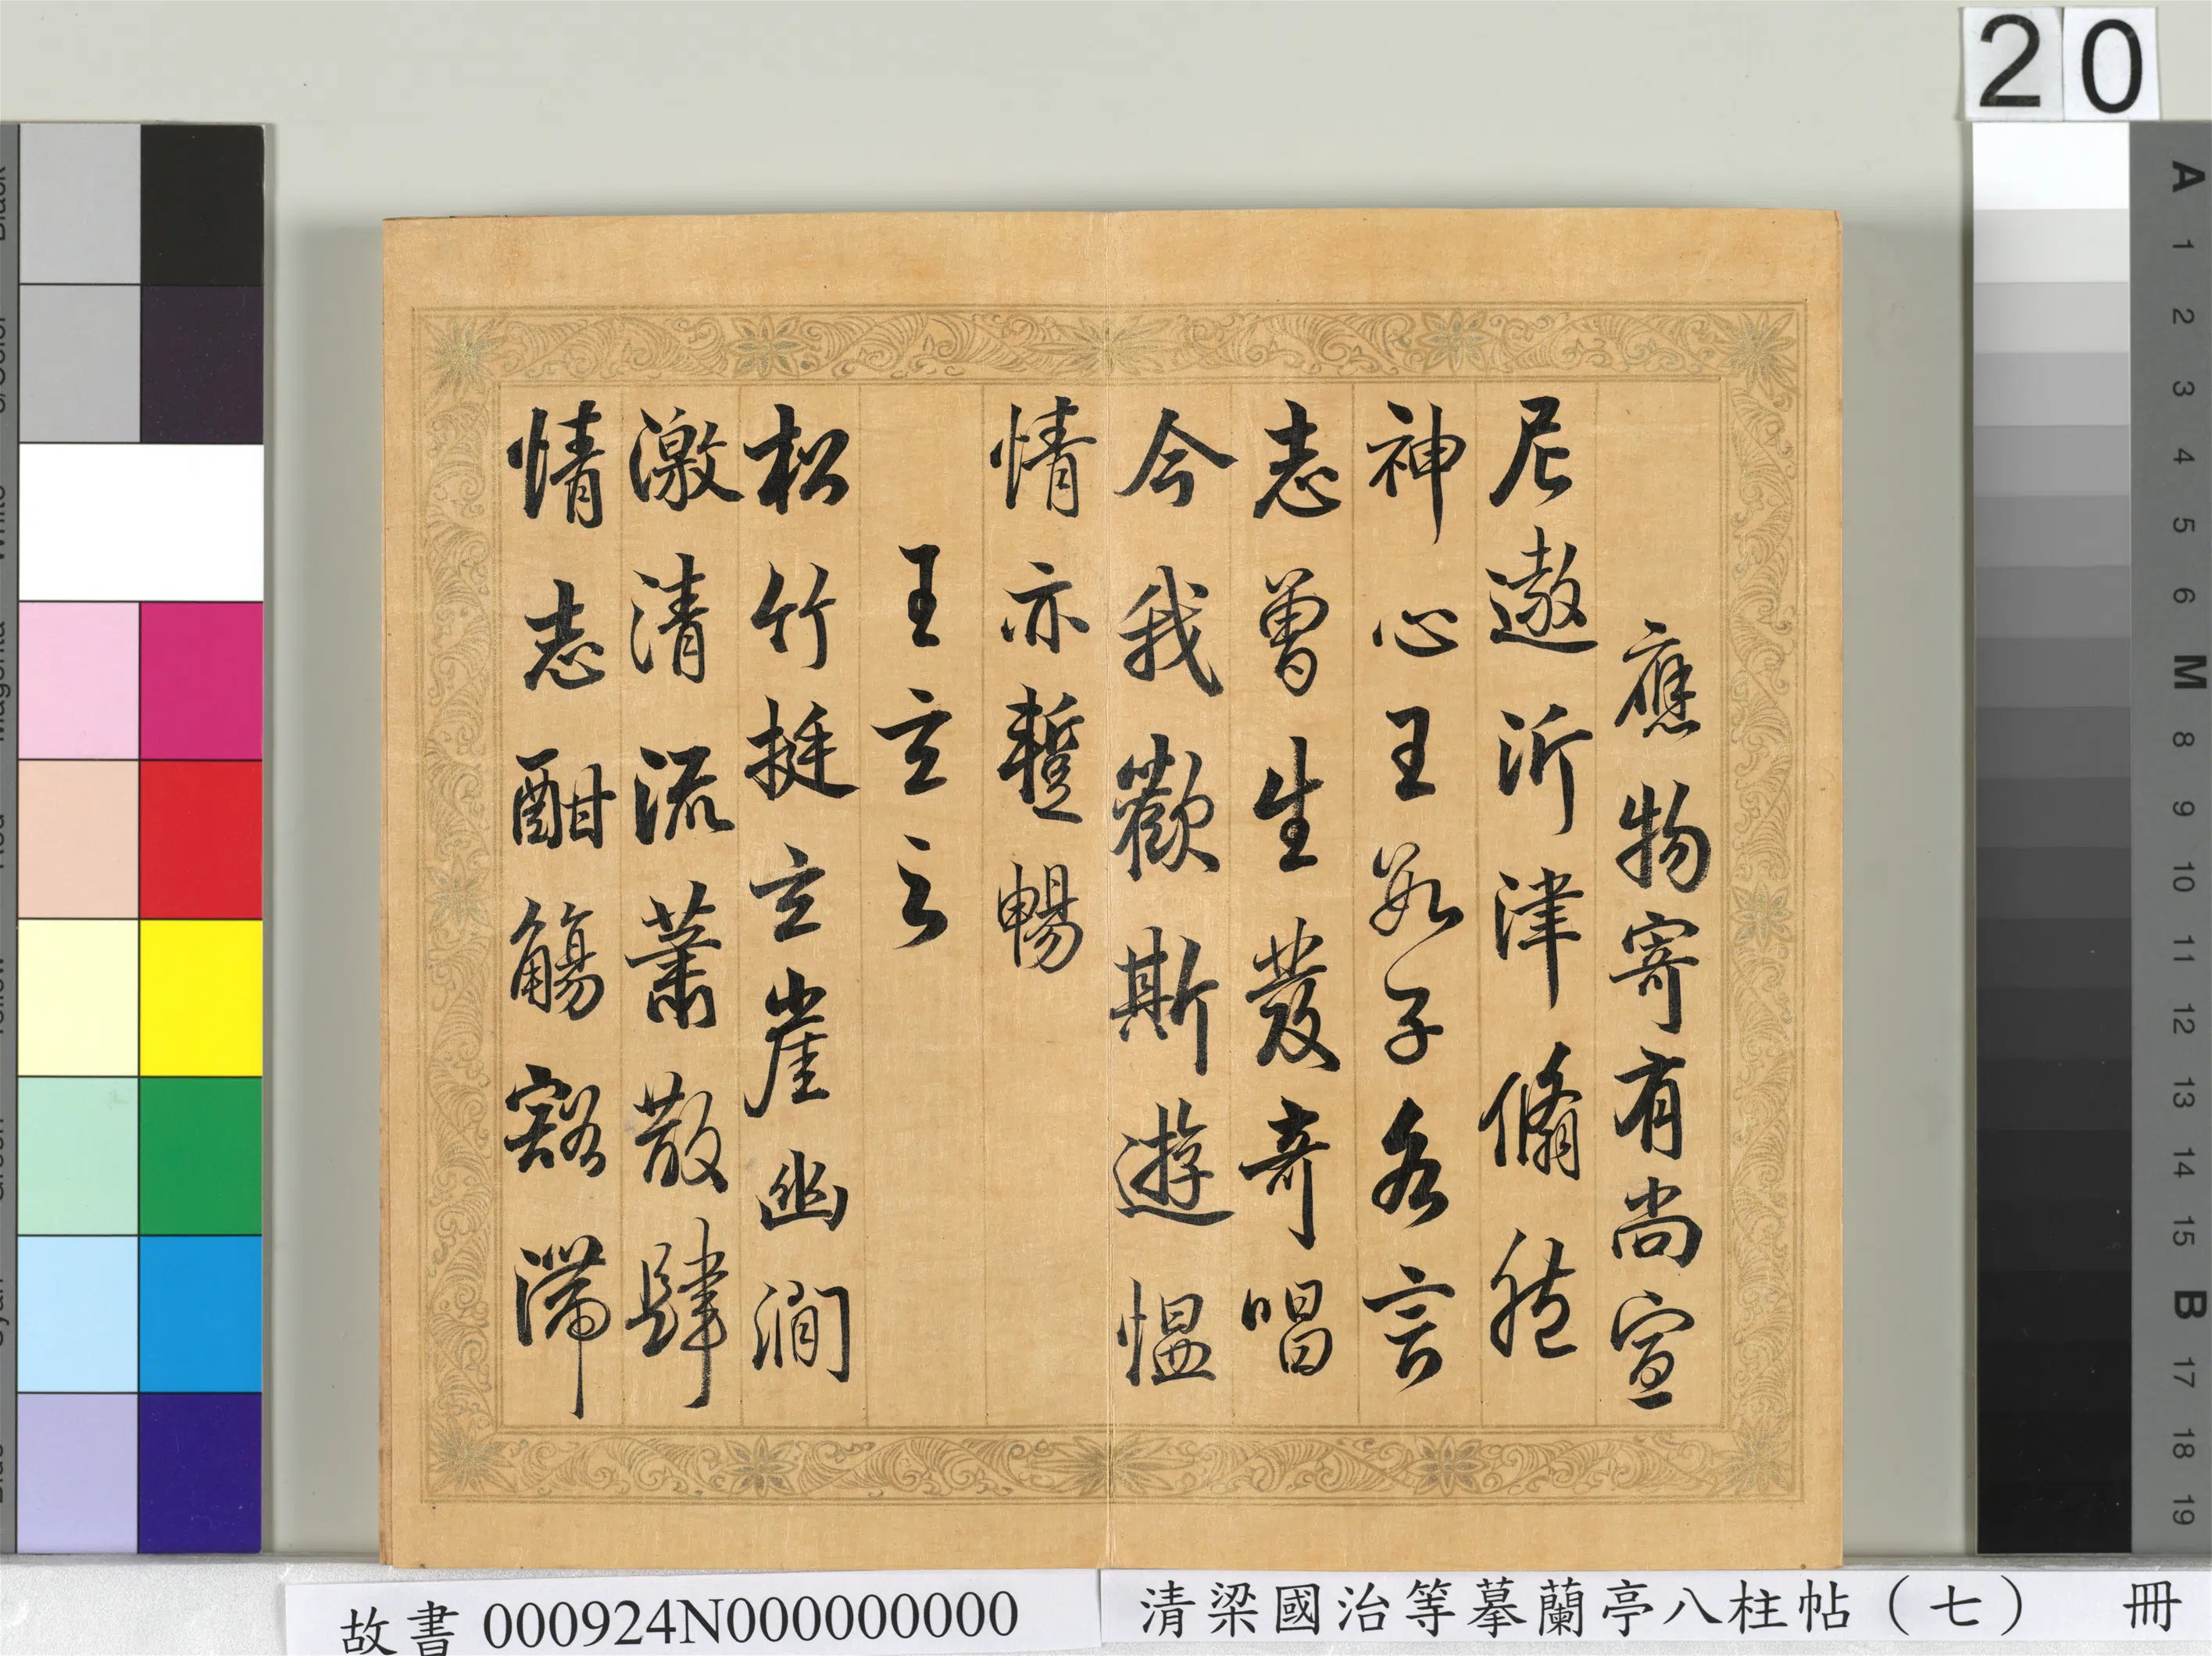 應物寄有尚宣
尼遨沂津翛然
神心王數子各言
志曾生發奇唱
今我歡斯遊慍
情亦蹔暢
王玄之
松竹挺玄崖幽澗
激清流蕭散肆
情志酣觴豁滯
20
A 1 2 3 4 5 6 M 8 9 10 11 12 13 14 15 B 17 18 19
故書 000924N000000000
清梁國治等摹蘭亭八柱帖（七） 冊